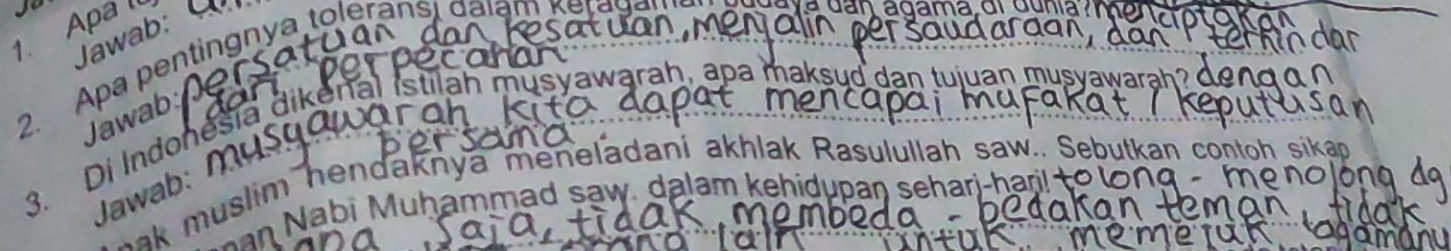 1. Apa pentingnya toleransi dalam keragaman budaya dan agama di dunia? menciptakan
Jawab: persatuan dan kesatuan, menjalin persaudaraan, dan terhindar
dari perpecahan
2. Di Indonesia dikenal istilah musyawarah, apa maksud dan tujuan musyawarah? dengan
Jawab: musyawarah kita dapat mencapai mufakat / keputusan
bersama
3. muslim hendaknya meneladani akhlak Rasulullah saw.. Sebutkan contoh sikap
Nabi Muhammad saw. dalam kehidupan sehari-hari! tolong-menolong dg
saja, tidak membeda-bedakan teman, tidak
lain untuk memeluk agamanya